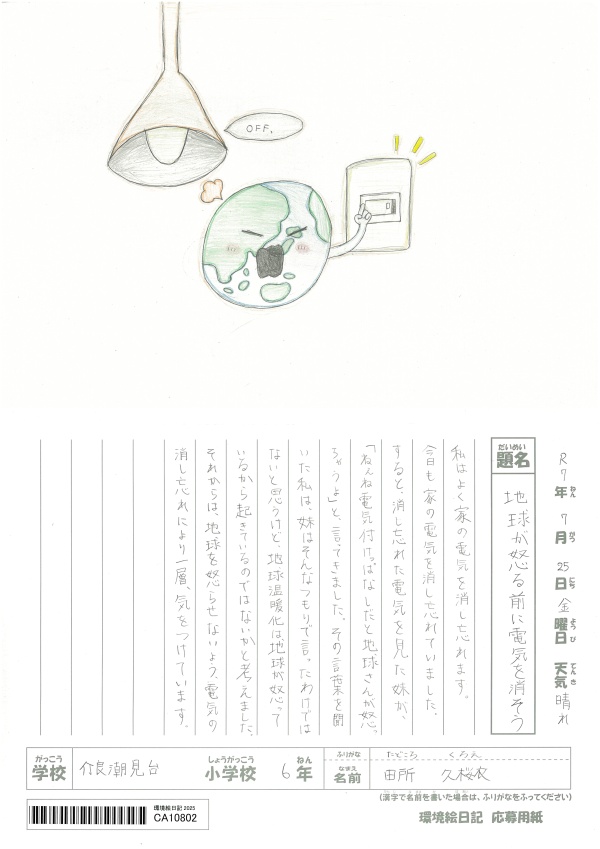 OFF.
R7年ねん 7月がつ 25日にち 金曜日ようび 天気てんき 晴れ
題名だいめい 地球が怒る前に電気を消そう
私はよく家の電気を消し忘れます。
今日も家の電気を消し忘れていました。
すると、消し忘れた電気を見た妹が、
「ねんね電気付けっぱなしだと地球さんが怒
ちゃうよ」と、言ってきました。その言葉を聞
いた私は、妹はそんなつもりで言ったわけでは
ないと思うけど、地球温暖化は地球が怒って
いるから起きているのではないかと考えました。
それからは、地球を怒らせないよう、電気の
消し忘れにより一層、気をつけています。
がっこう しょうがっこう ねん ふりがな たどころ くろえ
学校 介良潮見台 小学校 6年 名前なまえ 田所 久桜衣
(漢字で名前を書いた場合は、ふりがなをふってください)
環境絵日記 2025
CA10802
環境絵日記 応募用紙